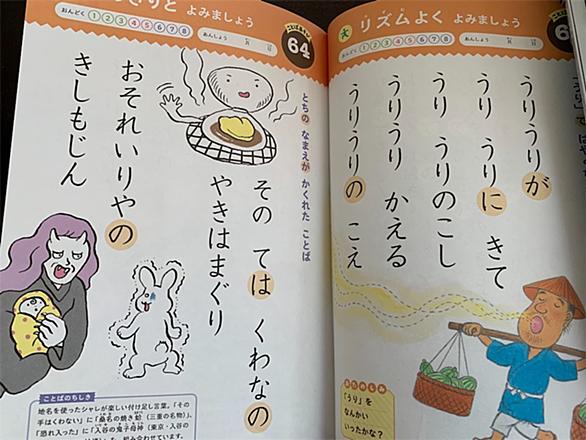 リズムよく よみましょう
おんどく 1 2 3 4 5 6 7 8
あんしょう 月 日
うりうりが
うり うりに きて
うり うりのこし
うりうり かえる
うりうりの こえ
「うり」を
なんかい
いったかな？
よみましょう
おんどく 1 2 3 4 5 6 7 8
あんしょう 月 日
64
とちの なまえが かくれた ことば
その ては くわなの
やきはまぐり
おそれいりやの
きしもじん
ことばのちしき
地名を使ったシャレが楽しい付け足し言葉。「その
手はくわない」に「桑名の焼き蛤（三重の名物）、
「恐れ入った」に「入谷の鬼子母神（東京・入谷の